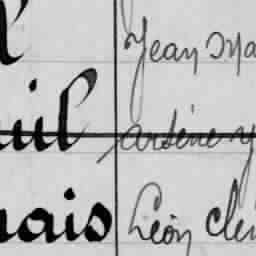 Jean Ma
uil arsène
nais Léon Clé